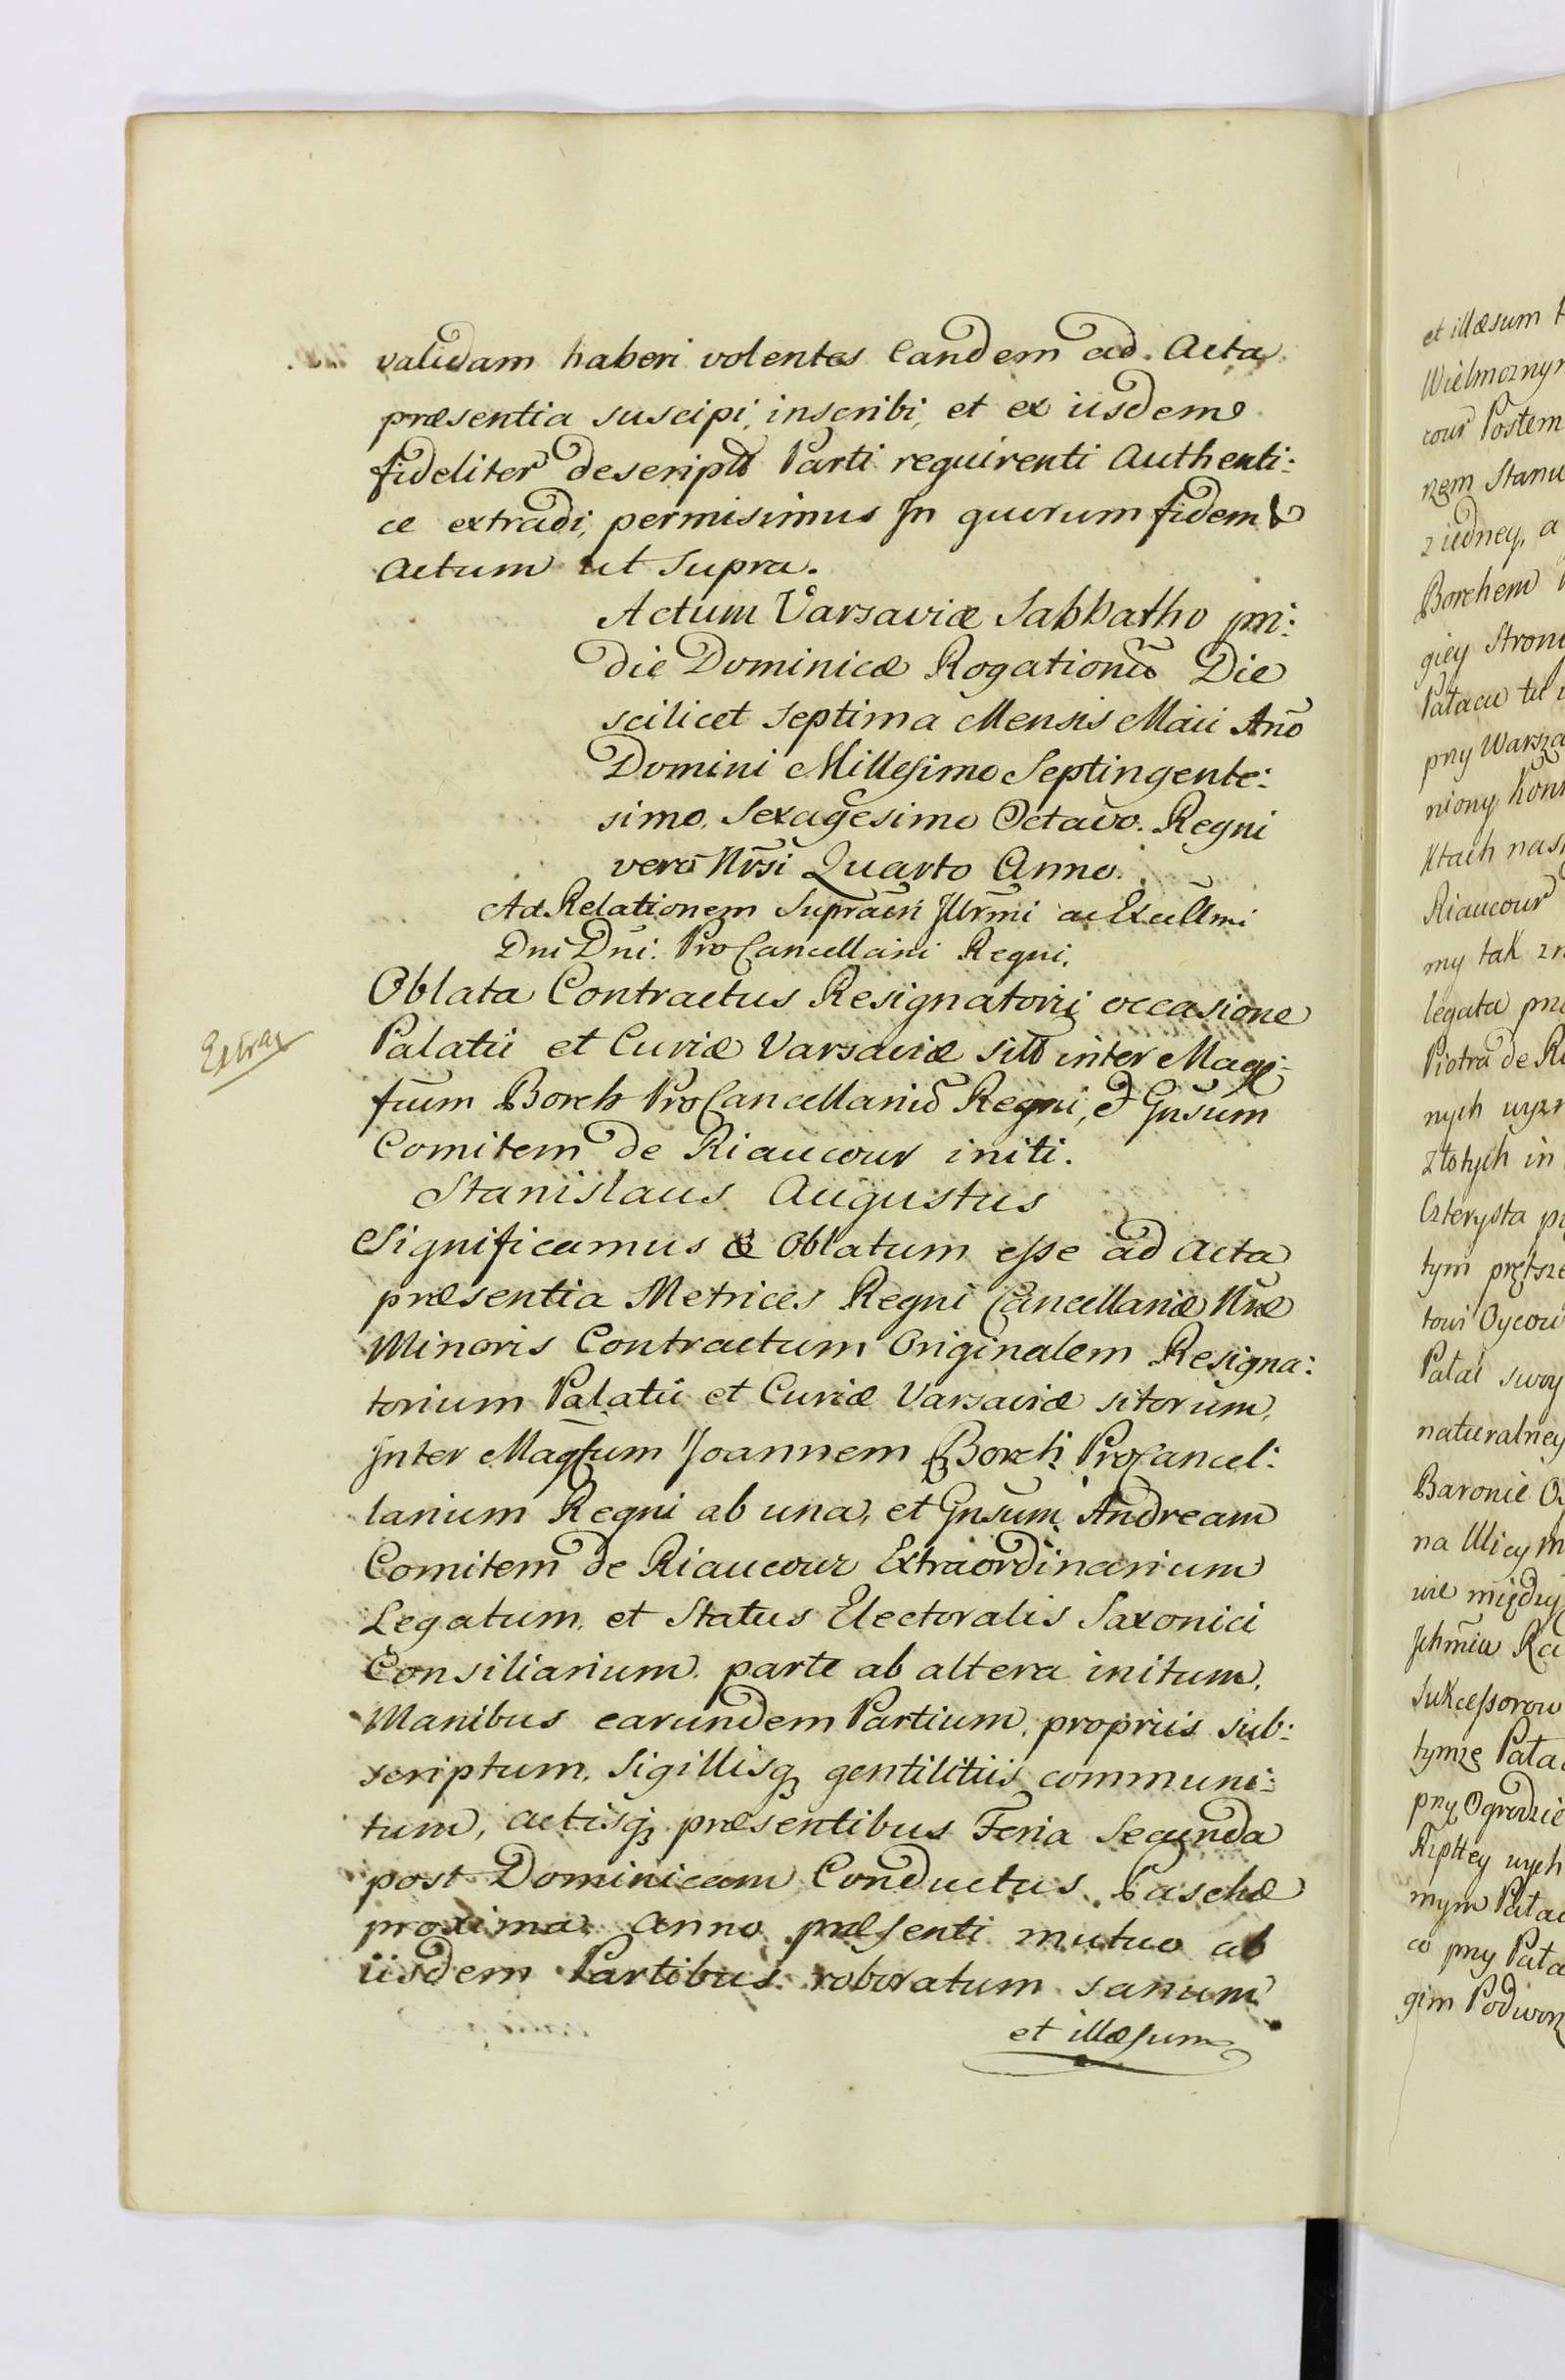 validam haberi volentes Eandem ad Acta
præsentia suscipi, inscribi, et ex iisdem
fideliter descriptā Parti requirenti Authenti:
ce extradi, permisimus In quorum fidem &
Actum ut Supra.
Actum Varsaviæ Sabbatho pri:
die Dominicæ Rogationū Die
scilicet Septima Mensis Maii Anō
Domini Millesimo Septingente:
simo, Sexagesimo Octavo. Regni
vero Nrsi Quarto Anno.
Ad Relationem Suprascri Illrmi ac Excellmi
Dni Dni: ProCancellarii Regni.
Oblata Contractus Resignatorii occasione
Extrac
Palatii et Curiæ Varsaviæ sitt inter Magni:
ficum Borch ProCancellariū Regni, et Gnsum
Comitem de Riaucour initi.
Stanislaus Augustus
Significamus & Oblatum esse ad Acta
præsentia Metrices Regni Cancellariæ Nræ
Minoris Contractum Originalem Resigna:
torium Palatii et Curiæ Varsaviæ sitorum,
Inter Magcum Joannem Borch ProCancel:
larium Regni ab una, et Gnsum Andream
Comitem de Riaucour Extraordinarium
Legatum, et Status Electoralis Saxonici
Consiliarium parte ab altera initum,
Manibus earundem Partium, propriis sub:
scriptum, Sigillisq gentilitiis communi:
tum, Actisq præsentibus Feria Secunda
post Dominicam Conductus Paschæ
proxima Anno præsenti mutuo ab
iisdem Partibus roboratum sanum
et illæsum
et illæsum
Wielmożnym
cour Postem
nzm Stanu
z iedney, a
Borchem
giey Strony
Pałacu tu
przy Warsza
niony Kon
ktach nas
Riaucour
my tak zn
legata prz
Piotra de Ri
nych wyzn
złotych in
Czterysta
tym prętsze
towi Oycow
Pałac swoy
naturalney
Baronie
na Ulicy
wie między
Jchmiu Ra
Sukcessorow
tymże Pałac
przy Ogrodzie
Rzpttey wych
mym Pałac
co przy Pała
gim Podworz